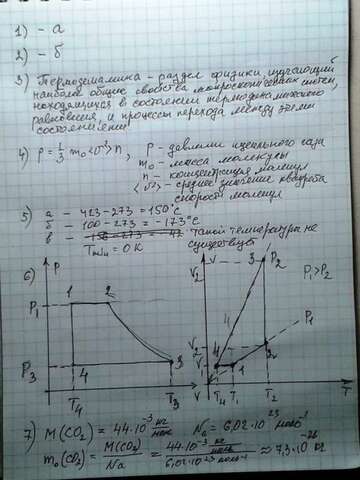 1) - а
2) - б
3) Термодинамика - раздел физики, изучающий
наиболее общие свойства макроскопических систем,
находящихся в состоянии термодинамического
равновесия, и процессы перехода между этими
состояниями
4) p = 1/3 m₀<v²>n, p - давление идеального газа
m₀ - масса молекулы
n - концентрация молекул
<v²> - среднее значение квадрата
скорости молекул
5) а - 423-273 = 150°C
б - 100-273 = -173°C
в - такой температуры не
существует
Tmin = 0K
6) P
P₁ 1 2
P₃ 4 3
T₄ T₃
V
V₂ 3 P₂ P₁>P₂
4 P₁
4 1 2
T₄ T₁ T₂ T
7) M(CO₂) = 44·10⁻³ кг/моль Na = 6,02·10²³ моль⁻¹
m₀(CO₂) = M(CO₂)/Na = 44·10⁻³ кг/моль / 6,02·10²³ моль⁻¹ ≈ 7,3·10⁻²⁶ кг